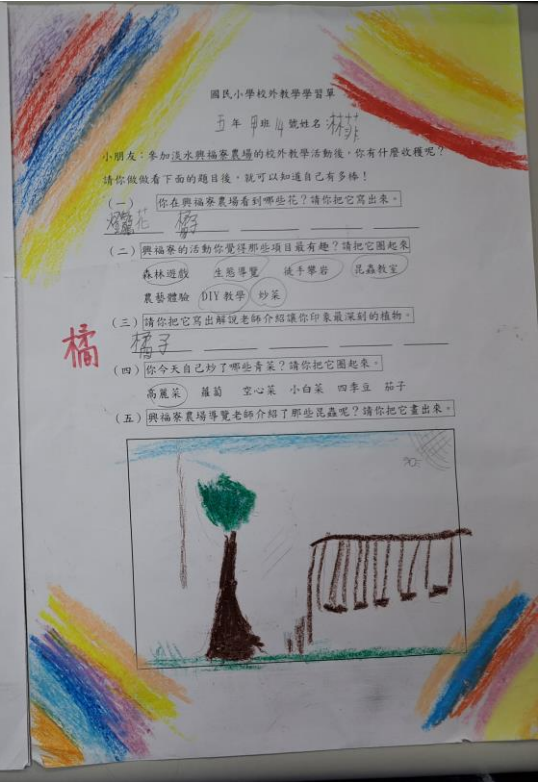 國民小學校外教學學習單
五年甲班14號姓名:林菲
小朋友:參加淡水興福寮農場的校外教學活動後,你有什麼收穫呢?
請你做做看下面的題目後,就可以知道自己有多棒!
(一) 你在興福寮農場看到哪些花?請你把它寫出來。
燈籠花 橘子
(二) 興福寮的活動你覺得那些項目最有趣?請把它圈起來
森林遊戲 生態導覽 徒手攀岩 昆蟲教室
農藝體驗 DIY教學 炒菜
(三) 請你把它寫出解說老師介紹讓你印象最深刻的植物。
橘 橘子
(四) 你今天自己炒了哪些青菜?請你把它圈起來。
高麗菜 蘿蔔 空心菜 小白菜 四季豆 茄子
(五) 興福寮農場導覽老師介紹了那些昆蟲呢?請你把它畫出來。